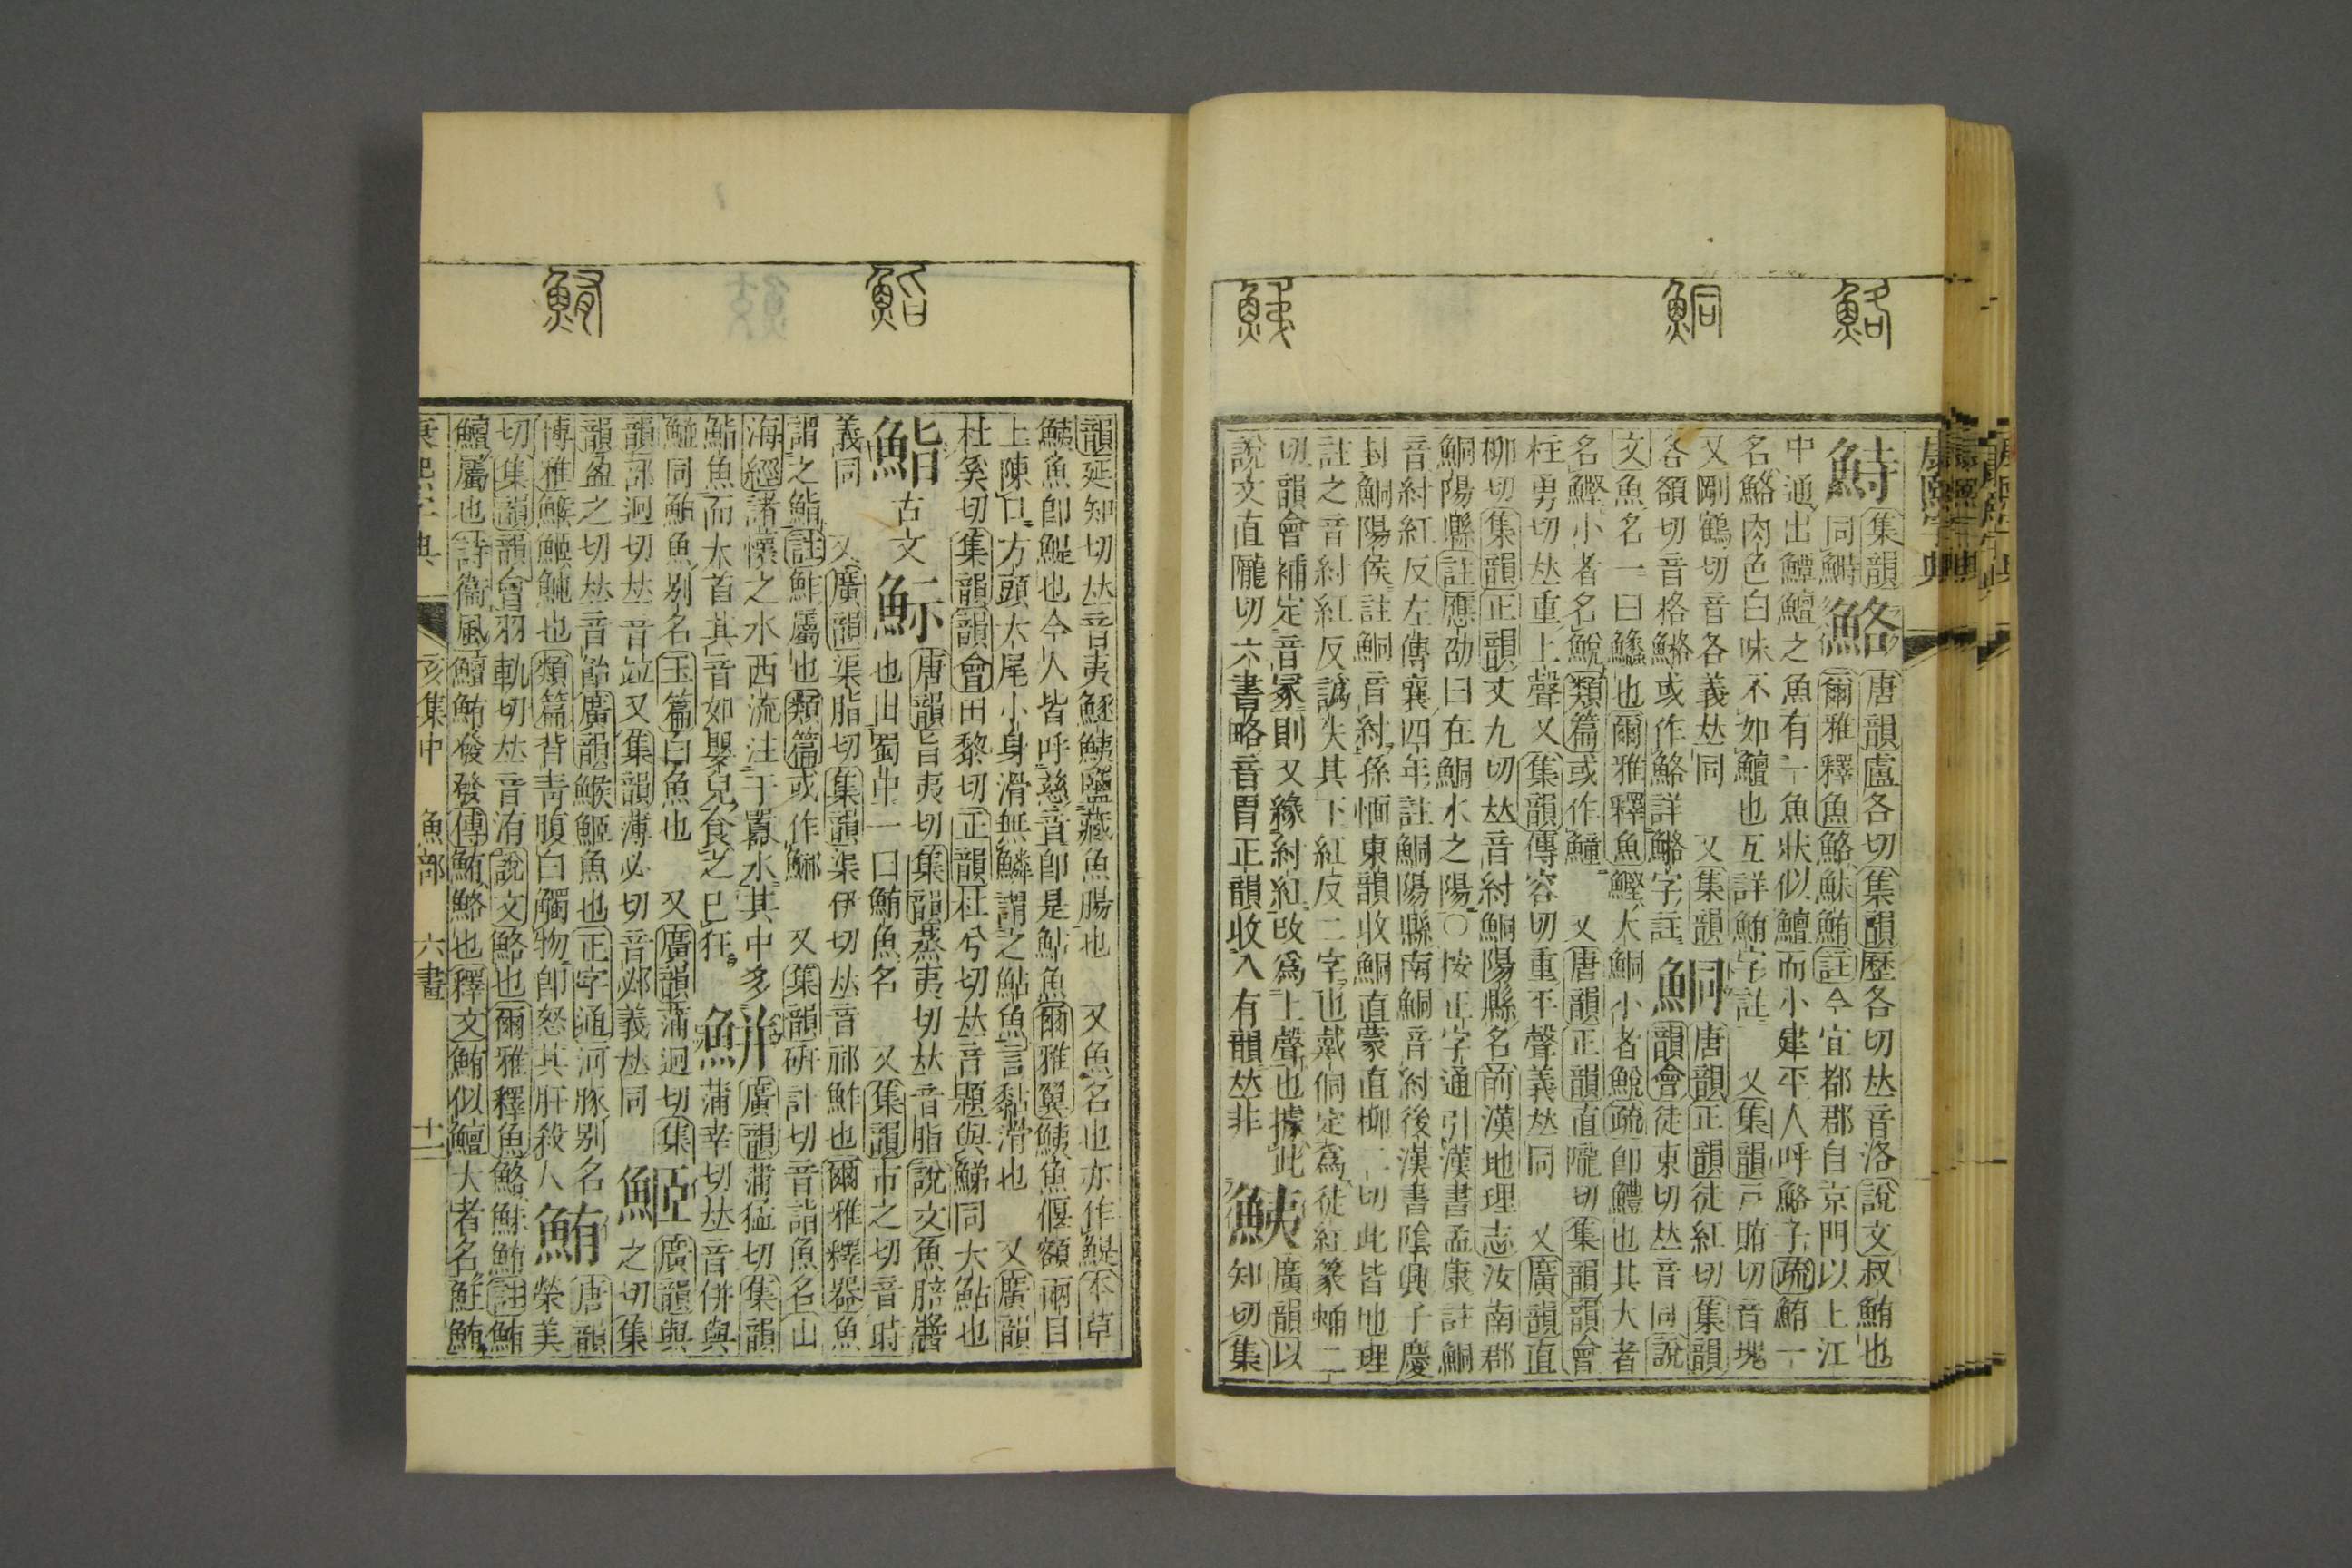 康熙字典
鮥
鮦
鮧
集韻
同鰣
鮥
唐韻盧各切集韻歷各切𠀤音洛說文叔鮪也
爾雅釋魚鮥鮛鮪註今宜都郡自京門以上江
中通出鱏鱣之魚有一魚狀似鱣而小建平人呼鮥子疏鮪一
名鮥肉色白味不如鱣也互詳鮪字註 又集韻戸賄切音瑰
又剛鶴切音各義𠀤同 又集韻
各額切音格鮥或作鮥詳鮥字註
鮦
唐韻正韻徒紅切集韻
韻會徒東切𠀤音同說
文魚名一曰鱶也爾雅釋魚鰹大鮦小者鮵疏卽鱧也其大者
名鰹小者名鮵類篇或作鱣 又唐韻正韻直隴切集韻韻會
柱勇切𠀤重上聲又集韻傳容切重平聲義𠀤同 又廣韻直
柳切集韻正韻丈九切𠀤音紂鮦陽縣名前漢地理志汝南郡
鮦陽縣註應劭曰在鮦水之陽○按正字通引漢書孟康註鮦
音紂紅反左傳襄四年註鮦陽縣南鮦音紂後漢書陰興子慶
封鮦陽侯註鮦音紂孫愐東韻收鮦直蒙直柳二切此皆地理
註之音紂紅反譌失其下紅反二字也戴侗定為徒紅篆蛹二
切韻會補定音冡則又緣紂紅改爲上聲也據此
說文直隴切六書略音胃正韻收入有韻𠀤非
鮧
廣韻以
知切集
鮨
鮪
韻延知切𠀤音夷鱁鮧鹽藏魚腸也 又魚名也亦作鯷本草
鮧魚卽鯷也今人皆呼慈音卽是鮎魚爾雅翼鮧魚偃額兩目
上陳口方頭大尾小身滑無鱗謂之鮎魚言黏滑也 又廣韻
杜奚切集韻韻會田黎切正韻杜兮切𠀤音題與鯷同大鮎也
鮨
古文
䱁
唐韻旨夷切集韻蒸夷切𠀤音脂說文魚䏽醬
也出蜀中一曰鮪魚名 又集韻市之切音時
義同 又廣韻渠脂切集韻渠伊切𠀤音祁鮓也爾雅釋器魚
謂之鮨註鮓屬也類篇或作鰤 又集韻硏計切音詣魚名山
海經諸懷之水西流注于囂水其中多
鮨魚而犬首其音如嬰兒食之已狂
鮩
廣韻蒲猛切集韻
蒲幸切𠀤音併與
䱟同鮎魚别名玉篇白魚也 又廣韻蒲迥切集
韻部迥切𠀤音竝又集韻薄必切音邲義𠀤同
䱌
廣韻與
之切集
韻盈之切𠀤音飴廣韻鯸䱌魚也正字通河豚别名
博雅鯸䱌魨也類篇背靑腹白觸物卽怒其肝殺人
鮪
唐韻
榮美
切集韻韻會羽軌切𠀤音洧說文鮥也爾雅釋魚鮥鮛鮪註鮪
鱣屬也詩衞風鱣鮪發發傳鮪鮥也釋文鮪似鱣大者名䲑鮪
康熙字典 亥集中 魚部 六畫 十二